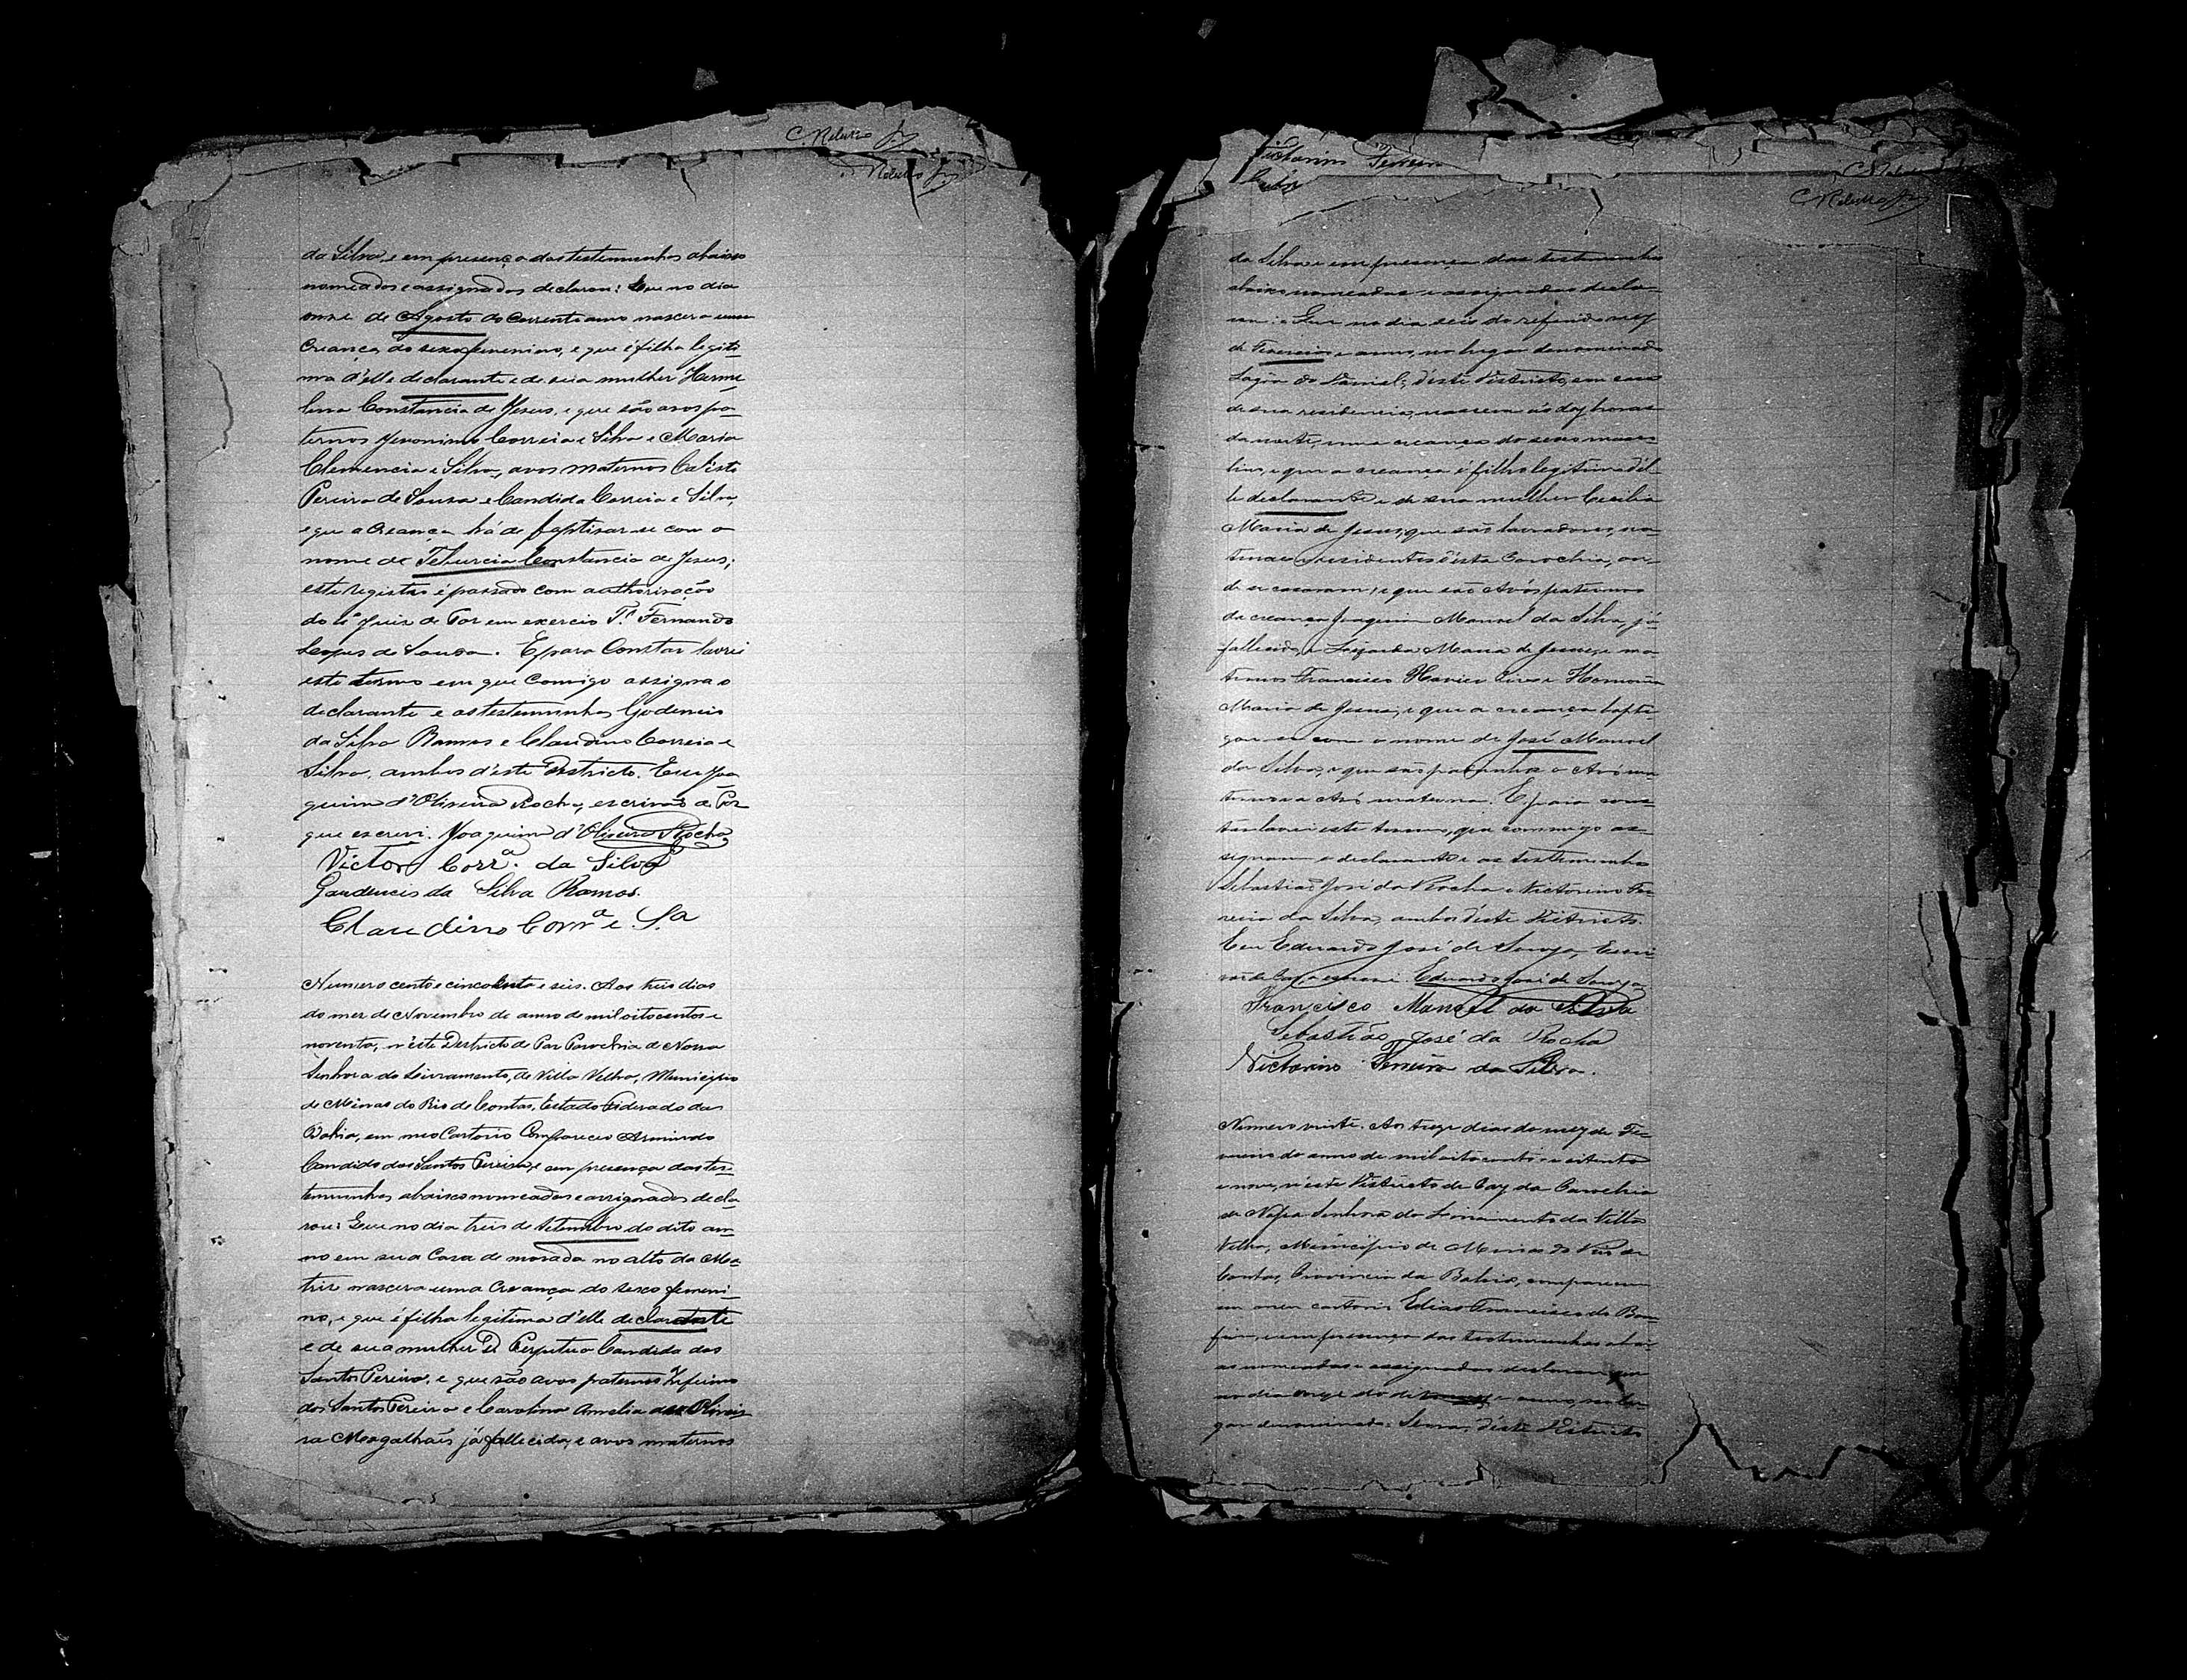 C. Rebello Jr
Rebello Jr
da Silva, e em presença das testemunhas abaixo
nomeados e assignados declarou: Que no dia
onze de Agosto do Corrente anno nascera uma
Creança do sexo femenino, e que é filha legiti-
ma d'elle declarante e de sua mulher Herme-
lina Constancia de Jesus, e que são avos pa-
ternos Jeronimo Correia e Silva e Maria
Clemencia e Silva, avos maternos Calisto
Pereira de Sousa e Candida Correia e Silva,
e que a Creança há de baptisar-se com o
nome de Teburcia Constancia de Jesus;
este registro é passado com authorisação
do Juiz de Paz em exercio Fernando
Lopes de Sousa. E para Constar lavrei
este termo em que Comigo assigna o
declarante e as testemunhas Godencio
da Silva Ramos e Claudino Correia e
Silva, ambos d'este Destricto. Eu Joa
quim d'Oliveira Rocha, escrivão de Paz
que escrevi. Joaquim d'Oliveira Rocha
Victor Corrª. da Silva
Gaudencio da Silva Ramos.
Claudino Corrª e Sª
Numero cento e cincoenta e seis. Aos treis dias
do mez de Novembro do anno de mil oitocentos e
noventa, n'este Destricto de Paz Parochia de Nossa
Senhora do Livramento, de Villa Velha, Municipio
de Minas do Rio de Contas, Estado Federado da
Bahia, em meo Cartorio Compareceo Arminio
Candido dos Santos Pereira, e em presença das tes-
temunhas abaixo nomeados e assignados decla
rou: Que no dia treis de Setembro do dito an-
no em sua Casa de morada no alto da Ma-
triz nascera uma Creança do sexo femeni-
no, e que é filha legitima d'elle declarante
e de sua mulher D. Perpetua Candida dos
Santos Pereira, e que são avos paternos
dos Santos Pereira e Carolina Amelia de Olivei-
ra Magalhães já fallecida, e avos maternos
Victorino Ferreira
C Rebello
C Rebello Jr
da Silva e em presença das testemunhas
abaixo nomeadas e assignadas decla-
rou: Que no dia seis do referido mez
de Fevereiro e anno, no lugar denominado
Lagôa do Daniel, d'este Districto, em casa
de sua residencia, nascera ás dez horas
da noite, uma creança do sexo mascu
lino, e que a creança é filho legitimo d'el-
le declarante e de sua mulher Cecilia
Maria de Jesus, que são lavradores, na-
turaes e residentes d'esta Parochia, on-
de se casaram, e que são Avós paternos
da creança Joaquim Manoel da Silva, já
fallecido, e Maria de Jesus, e ma
ternos Francisco Xavier
Maria de Jesus, e que a creança bapti-
zou-se com o nome de José Manoel
da Silva, e que são padrinhos o Avô ma
terno e a Avó materna. E para cons-
tar lavrei este termo, que commigo as-
signam o declarante e as testemunhas
Sebastião José da Rocha e Victorino Fer
reira da Silva, ambos d'este Districto.
Eu Eduardo José de Souza, Escri
vão de Paz o escrevi. Eduardo José de Souza
Francisco Manoel da Silva
Sebastião José da Rocha
Victorino Ferreira da Silva.
Numero vinte. Aos treze dias do mez de Fe-
vereiro do anno de mil oitocentos e oitenta
e nove, n'este Districto de Paz da Parochia
de Nossa Senhora do Livramento da Villa
Velha, Municipio de Minas do Rio de
Contas, Provincia da Bahia, compareceu
em meu cartorio Elias Francisco do Bom
fim, e em presença das testemunhas abai-
xo nomeadas e assignadas declarou que
no dia onze do dito mez e anno, no lu-
gar denominado: Serra, d'este Districto